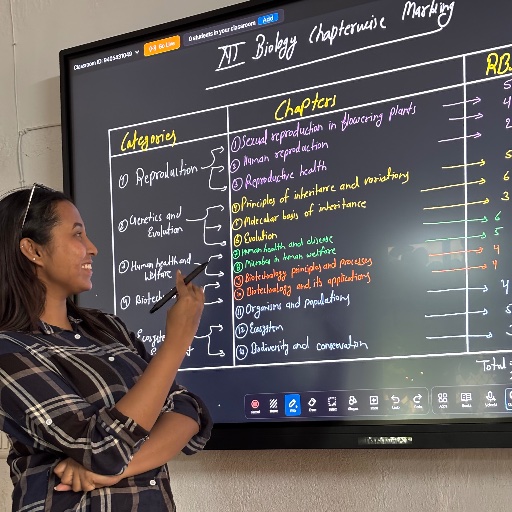 Classroom ID: 9405831049
Go Live
0 students in your classroom Add
XII Biology Chapterwise Marking
Categories Chapters RB
① Reproduction
① Sexual reproduction in flowering plants
② Human reproduction 4
③ Reproductive health 2
② Genetics and Evolution
④ Principles of inheritance and variations 5
⑤ Molecular basis of inheritance 6
⑥ Evolution 3
③ Human health and welfare
⑦ Human health and disease 6
⑧ Microbes in human welfare 5
④ Biotech
⑨ Biotechnology principles and processes 4
⑩ Biotechnology and its applications 4
Ecosyste
⑪ Organisms and populations 4
⑫ Ecosystem
⑬ Biodiversity and conservation
Total
Undo Redo